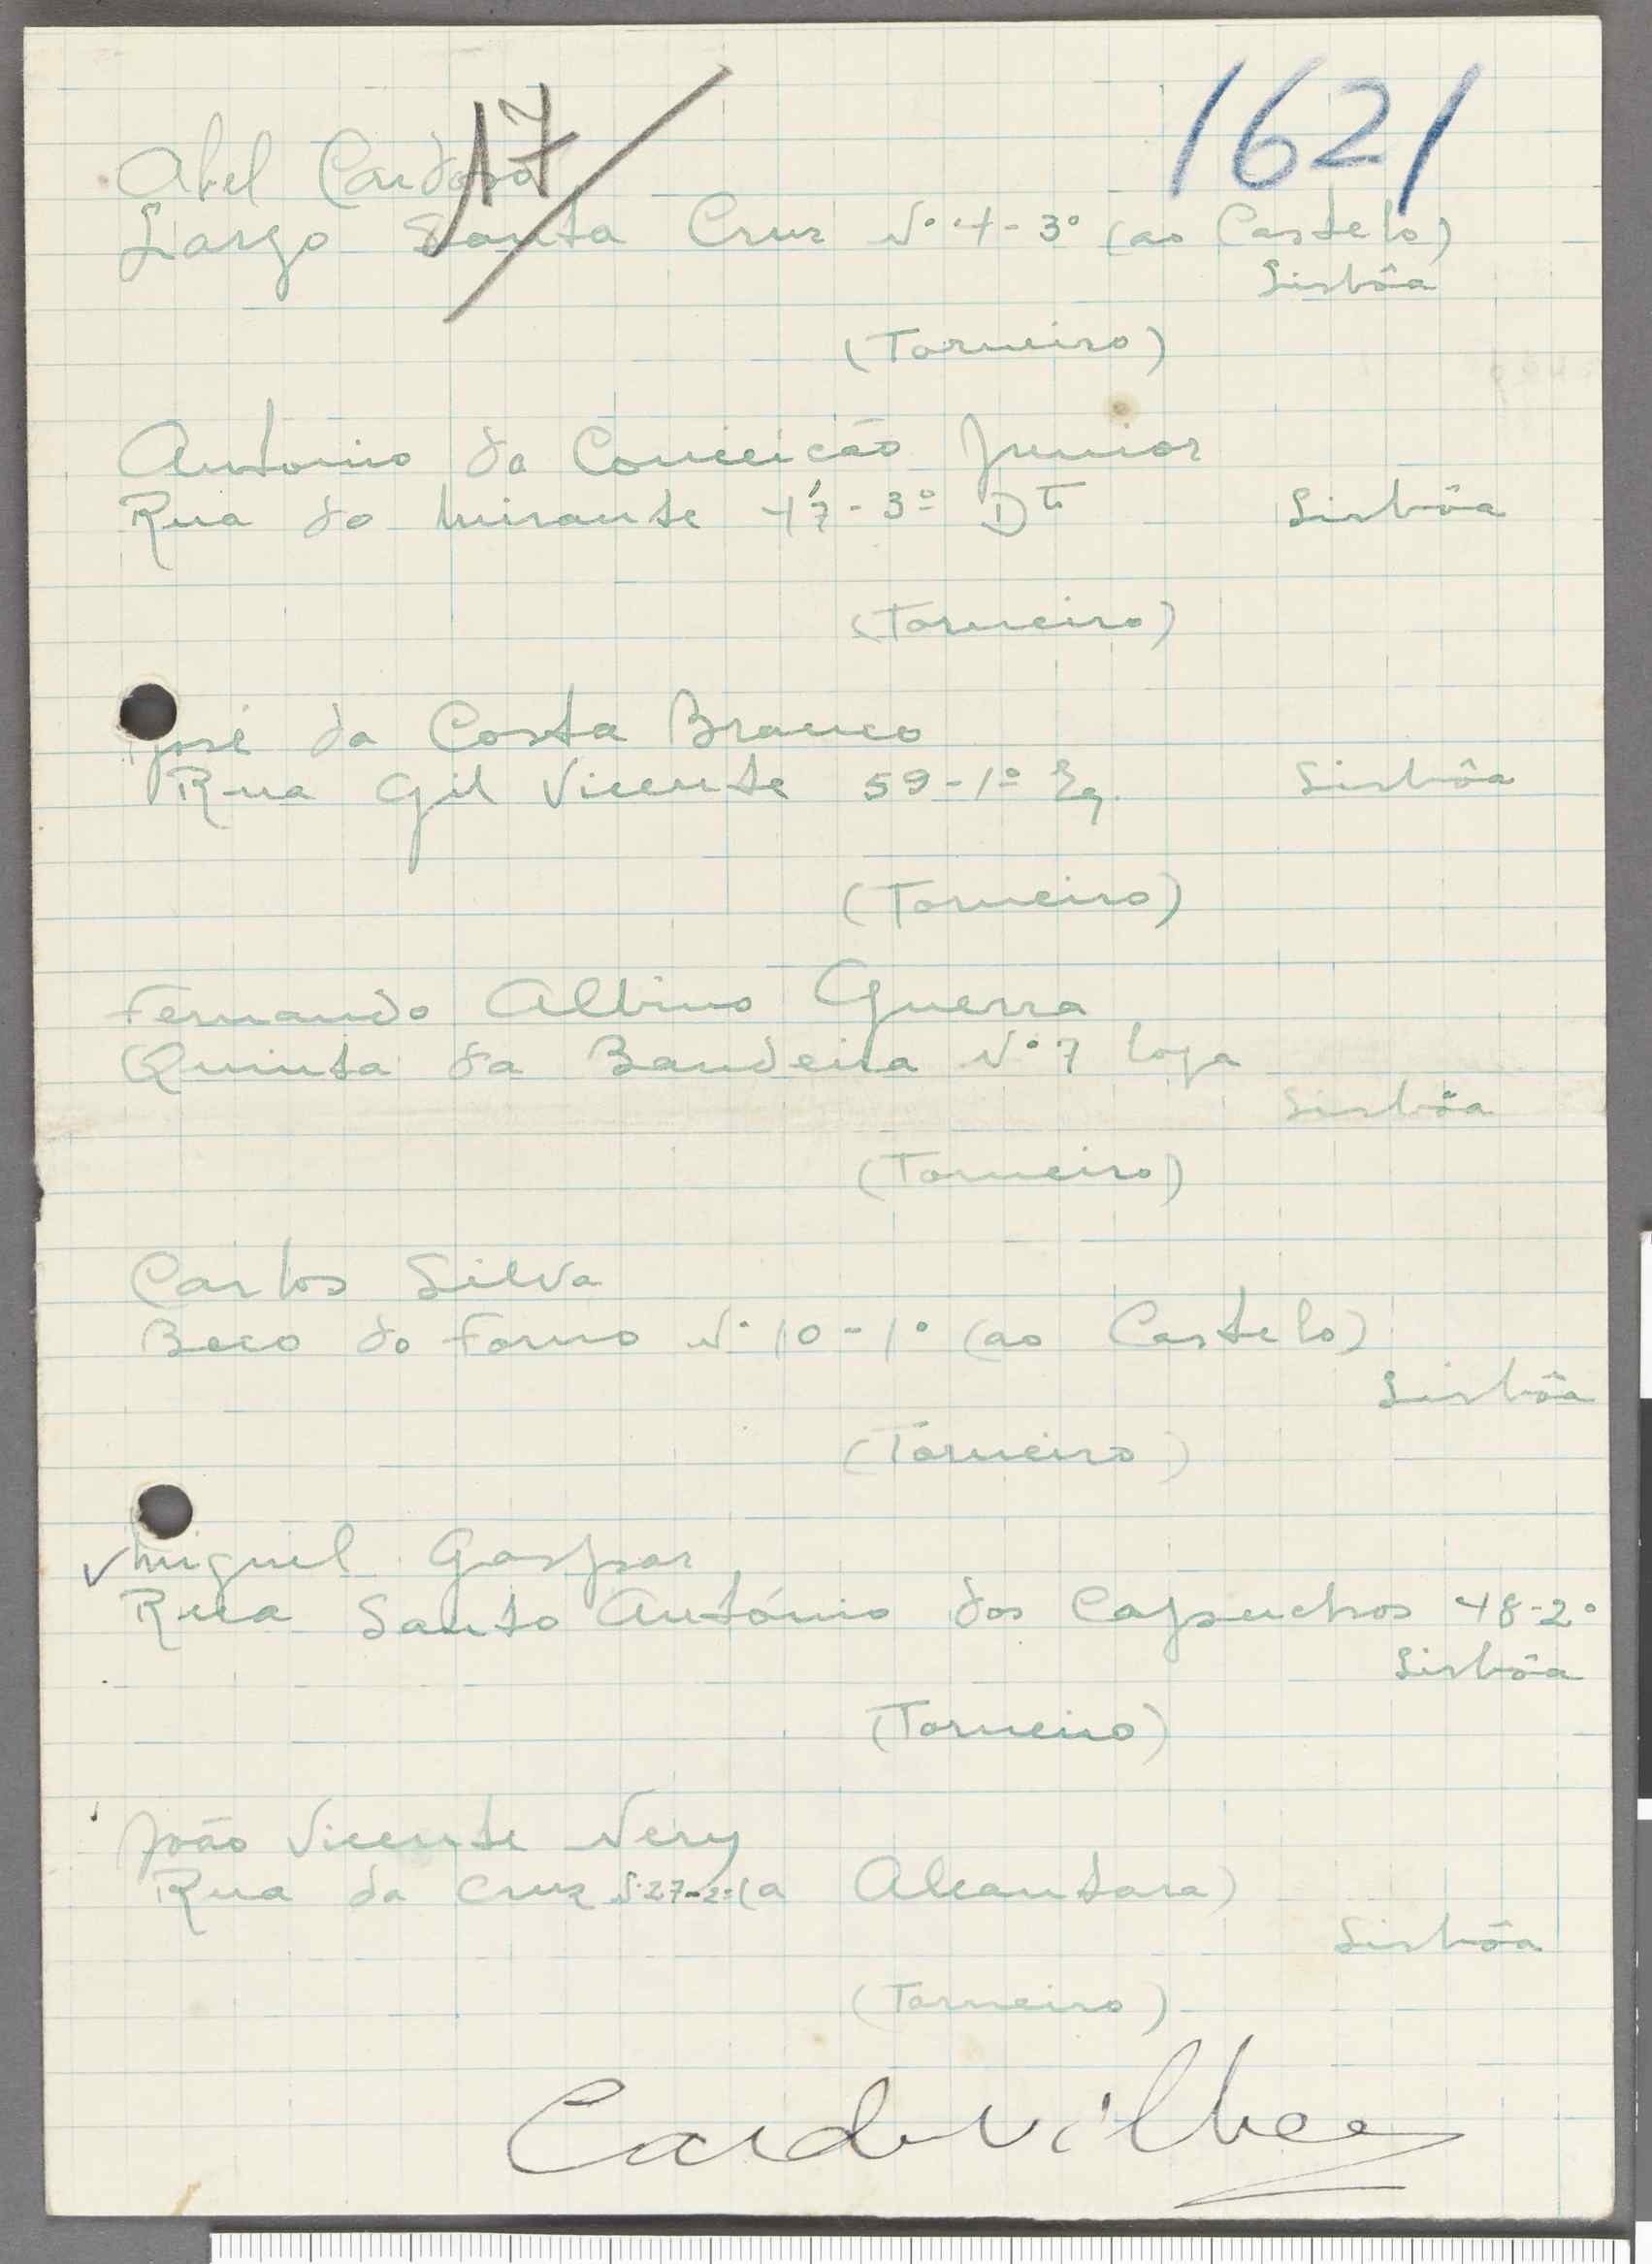 17
1621
Abel Cardoso
Largo Santa Cruz Nº 4-3º (ao Castelo)
Lisbôa
(Torneiro)
Antonio da Conceição Junior
Rua do Mirante 47-3º Dto
Lisbôa
(Torneiro)
José da Costa Branco
Rua Gil Vicente 59-1º Eq.
Lisbôa
(Torneiro)
Fernando Albino Guerra
Quinta da Bandeira Nº 7 loja
Lisbôa
(Torneiro)
Carlos Silva
Beco do Forno Nº 10-1º (ao Castelo)
Lisbôa
(Torneiro)
Miguel Gaspar
Rua Santo António dos Capuchos 48-2º
Lisbôa
(Torneiro)
João Vicente Nery
Rua da Cruz Nº 27-2º (a Alcantara)
Lisbôa
(Torneiro)